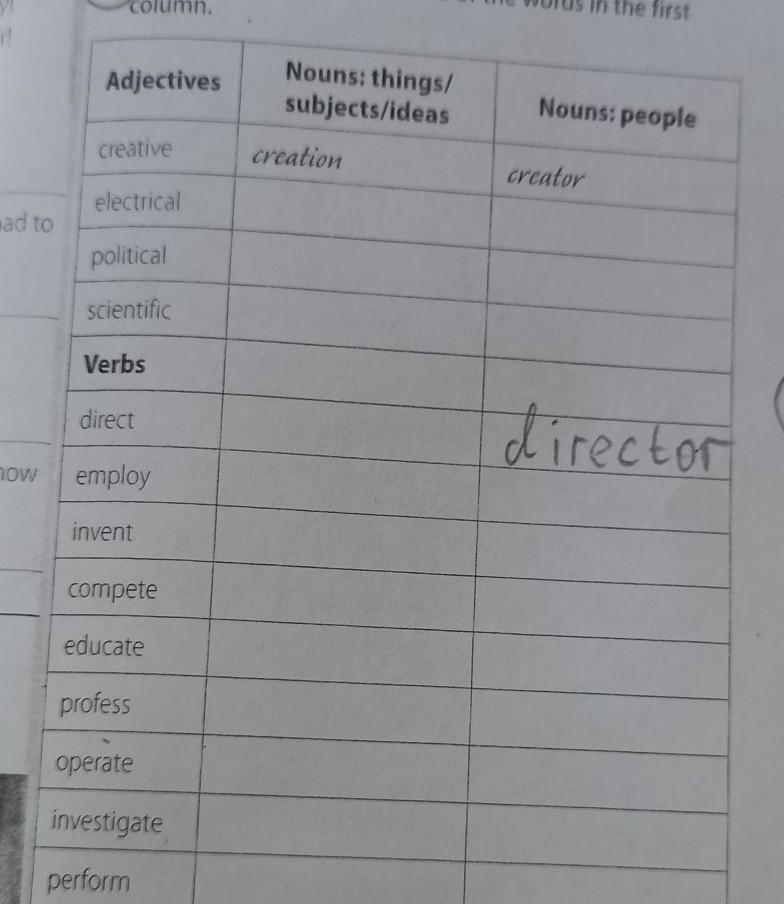 column.
words in the first
r!
Adjectives
Nouns: things/
subjects/ideas
Nouns: people
creative
creation
creator
electrical
ad to
political
scientific
Verbs
direct
director
employ
now
invent
compete
educate
profess
operate
investigate
perform